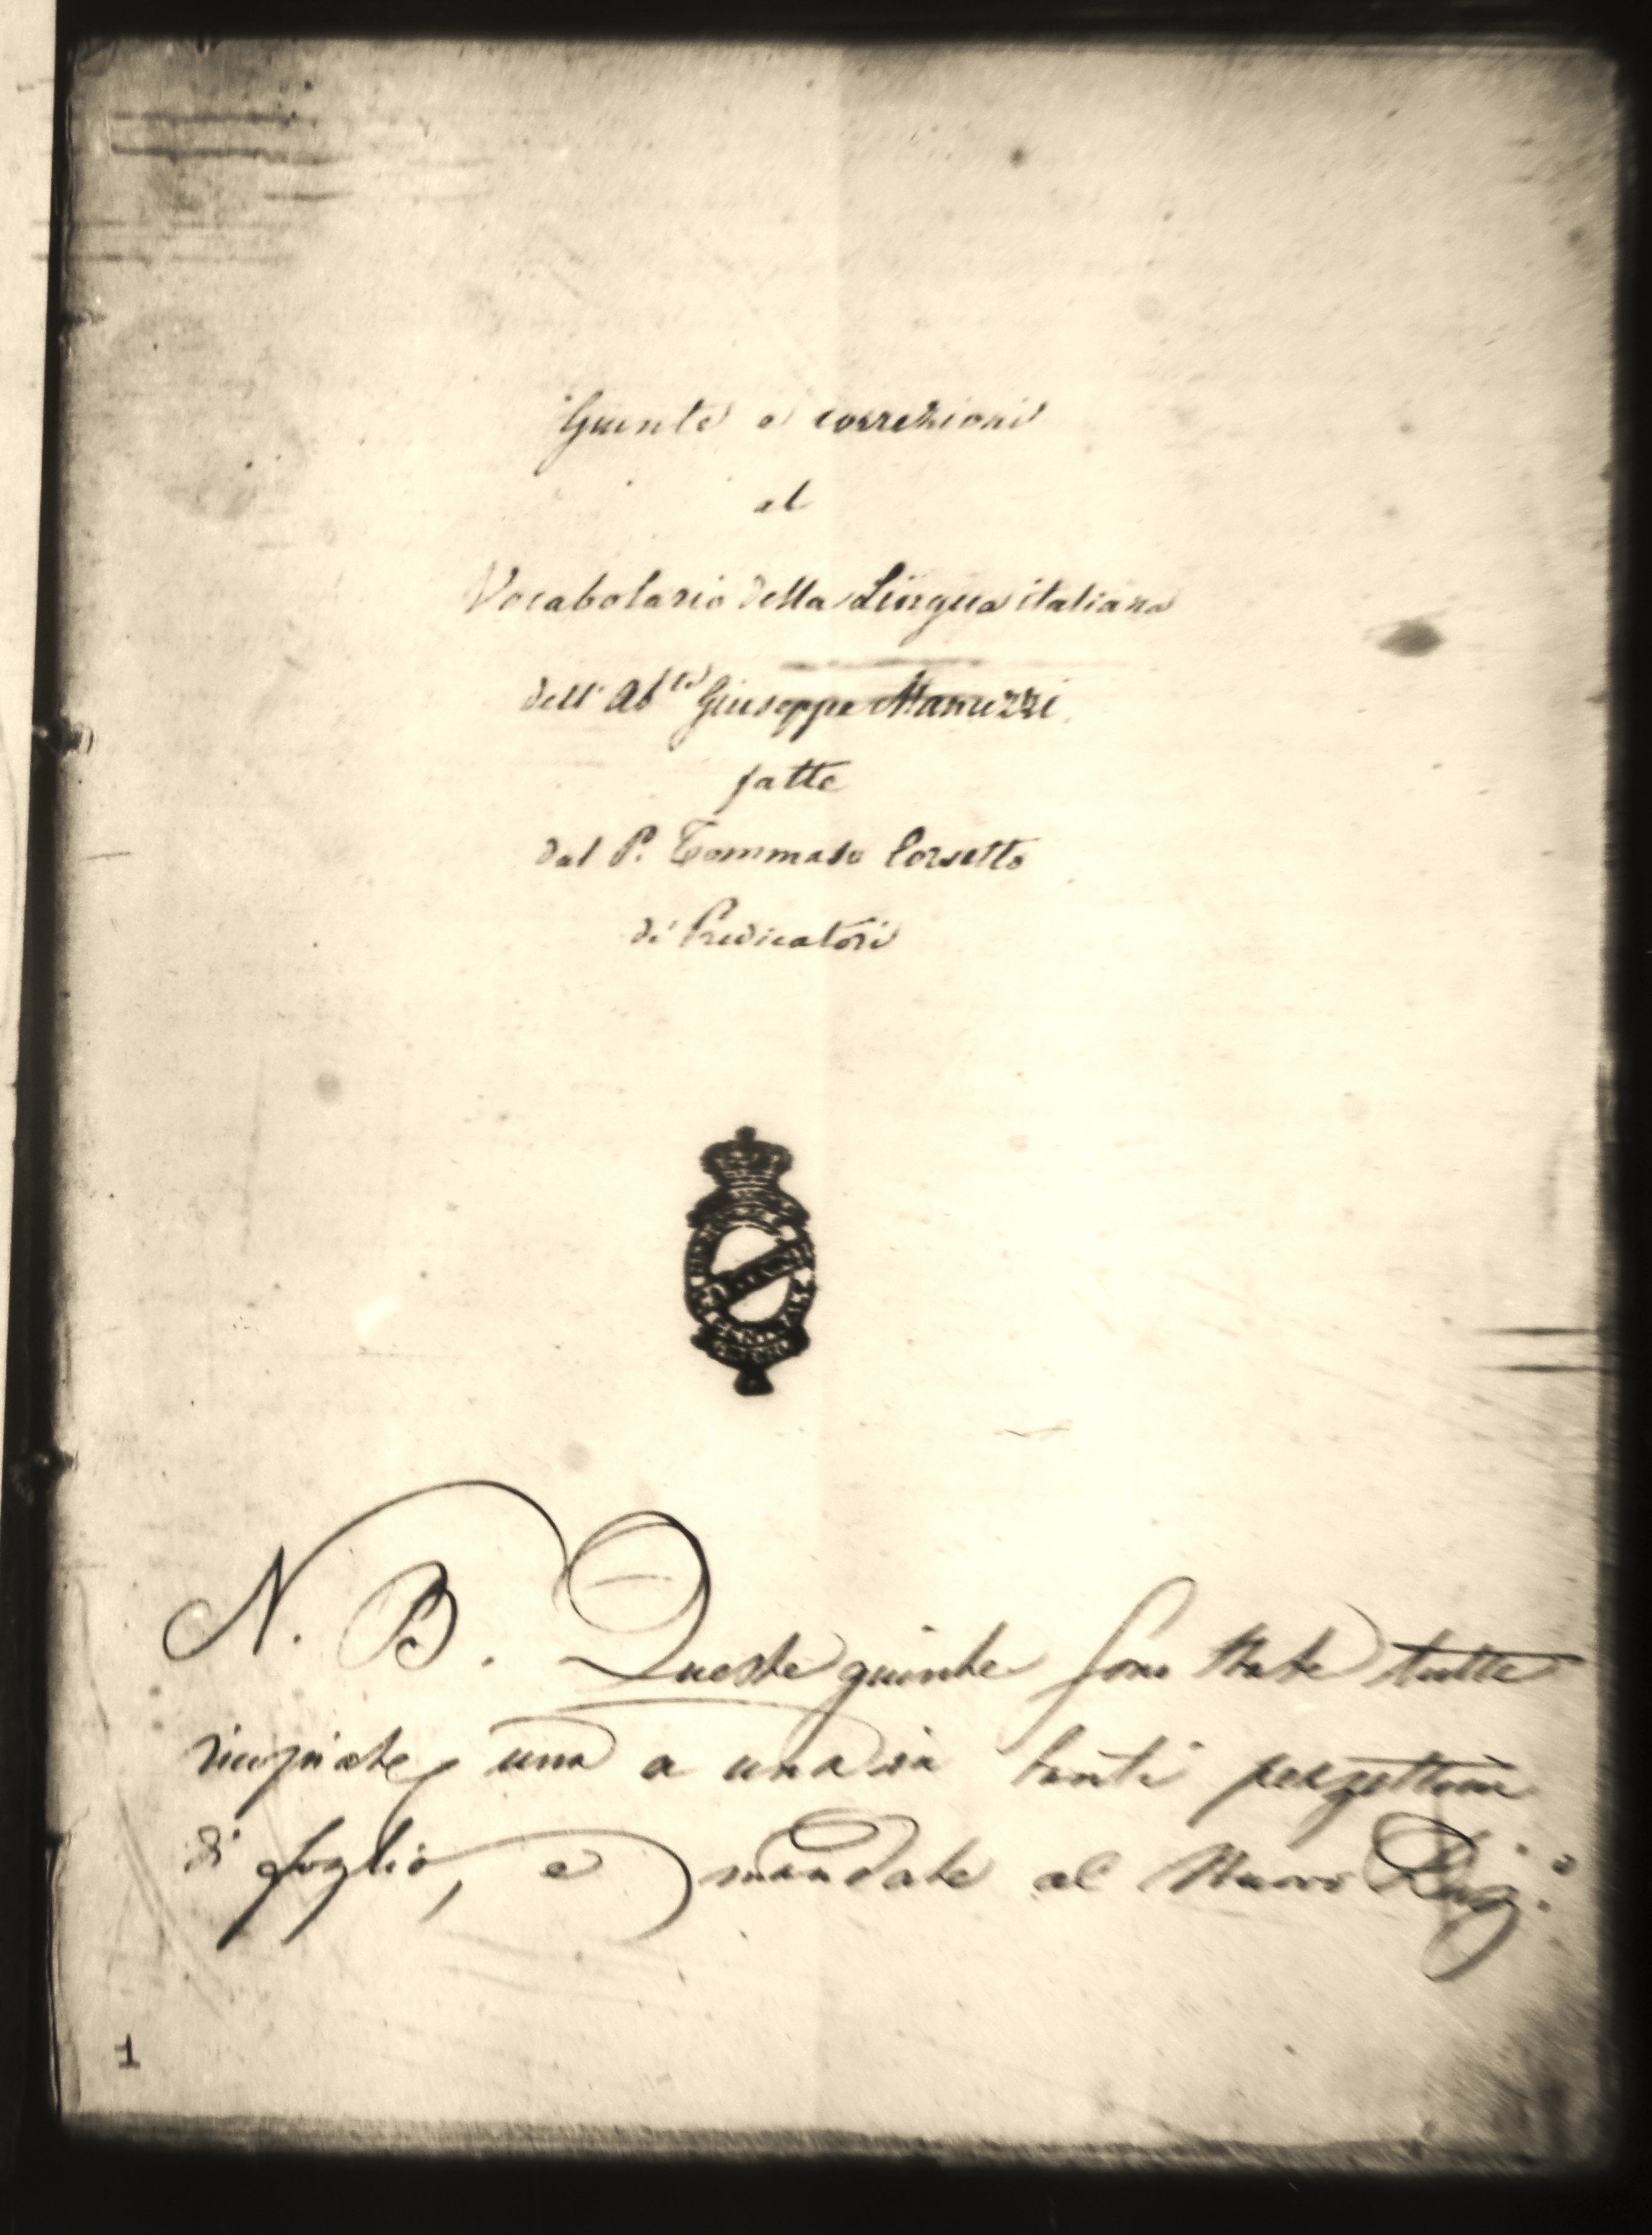 Giunte e correzioni
al
Vocabolario della Lingua italiana
dell' Ab.te Giuseppe Manuzzi
fatte
dal P. Tommaso Corsetto
de' Predicatori
N. B. Queste giunte sono state tutte
ricopiate, una a una in tanti pezzettini
di foglio, e mandate al Manuzzi
1